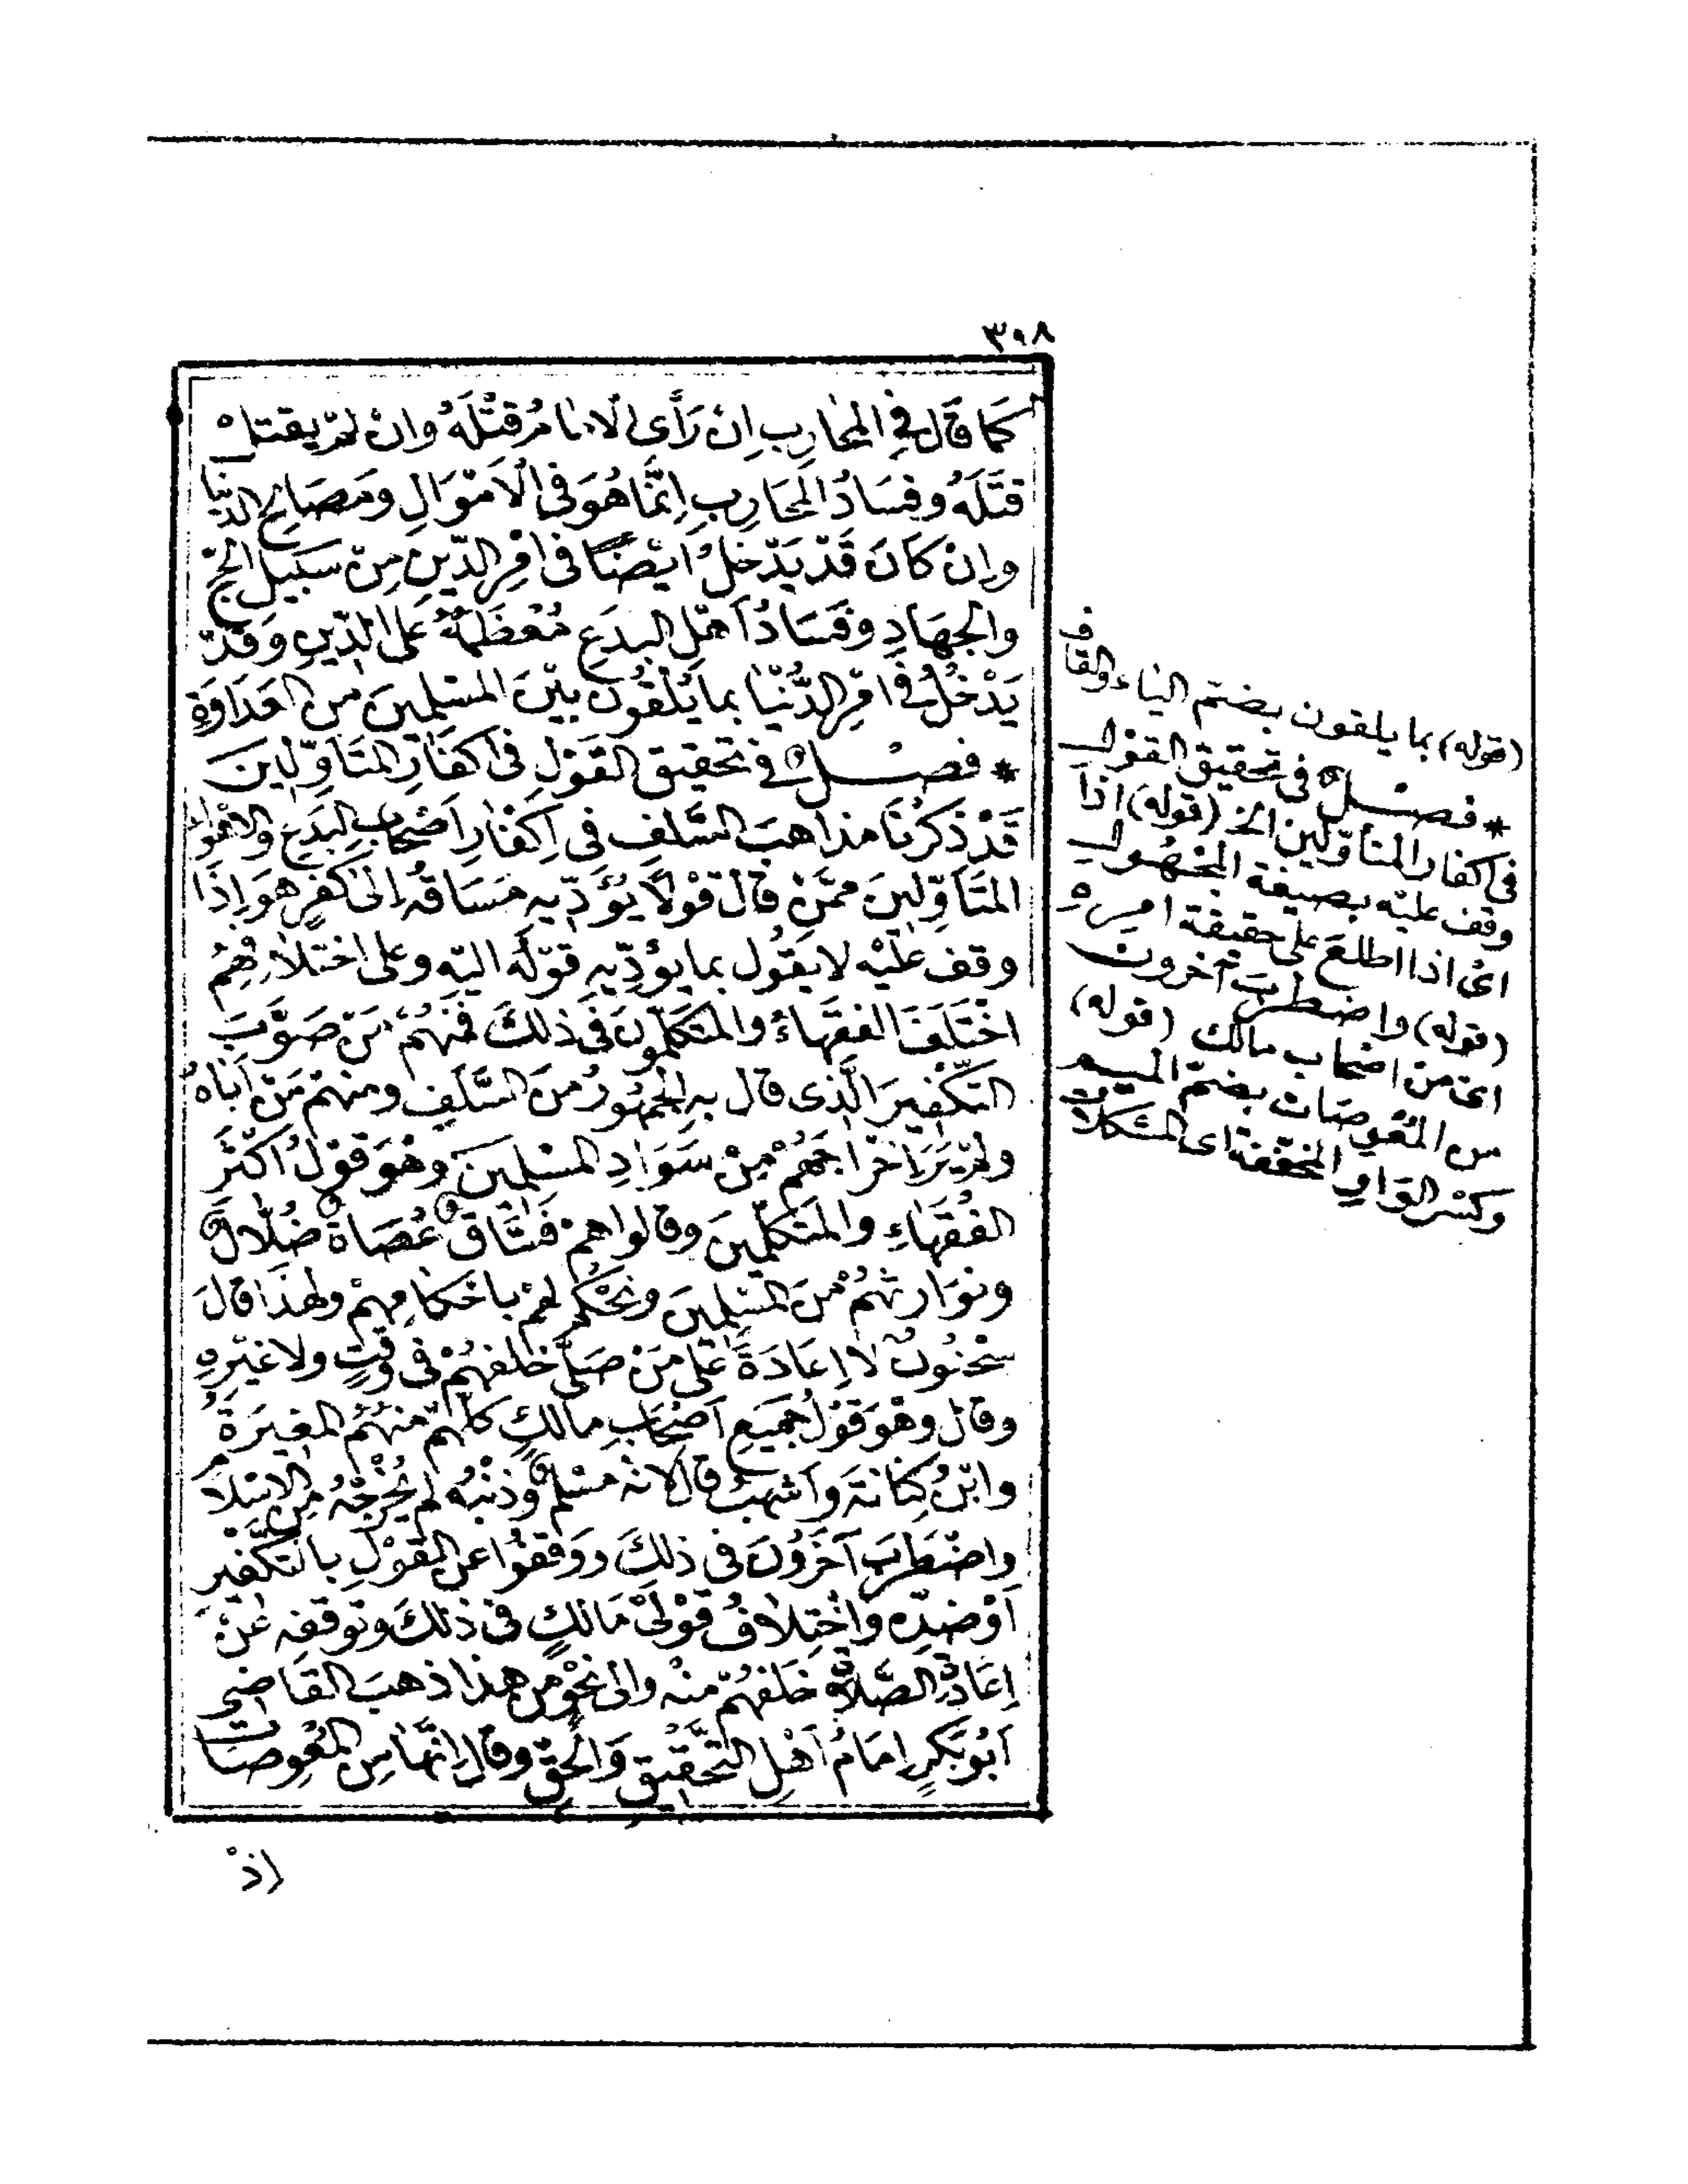 ٣٠٨
كَمَا قَالَ فِي المُحَارِبِ اِنْ رَأَى الْاِمَامُ قَتْلَهُ وَاِنْ لَمْ يَقْتُلْ
قَتَلَهُ وَفَسَادُ المُحَارِبِ اِنَّمَا هُوَ فِي الْاَمْوَالِ وَمَصَالِحِ الدُّنْيَا
وَاِنْ كَانَ قَدْ يَدْخُلُ اَيْضًا فِي اَمْرِ الدِّينِ مِنْ سَبِيلِ الحَجِّ
وَالْجِهَادِ وَفَسَادُ اَهْلِ البِدَعِ مُعْظَمُهُ عَلَى الدِّينِ وَقَدْ
يَدْخُلُ فِي اَمْرِ الدُّنْيَا بما يُلْقُونَ بَيْنَ المُسْلِمِينَ مِنَ العَدَاوَةِ
* فصْلٌ فِي تَحْقِيقِ القَوْلِ فِي اِكْفَارِ المُتَأَوِّلِينَ
قَدْ ذَكَرْنَا مَذَاهِبَ السَّلَفِ فِي اِكْفَارِ اَصْحَابِ البِدَعِ وَالاَهْوَاءِ
المُتَأَوِّلِينَ مِمَّنْ قَالَ قَوْلًا يُؤَدِّيهِ مَسَاقُهُ اِلَى كُفْرٍ هُوَ اِذَا
وقف عَلَيْهِ لا يَقُولُ بما يُؤَدِّيهِ قَوْلُهُ اِلَيْهِ وَعَلَى اخْتِلَافِهِمْ
اخْتَلَفَ الفُقَهَاءُ وَالمُتَكَلِّمُونَ فِي ذَلِكَ فَمِنْهُمْ مَنْ صَوَّبَ
التَّكْفِيرَ الَّذِى قَالَ بِهِ الجُمْهُورُ مِنَ السَّلَفِ وَمِنْهُمْ مَنْ اَبَاهُ
وَلَمْ يَرَ اِخْرَاجَهُمْ مِنْ سَوَادِ المُسْلِمِينَ وَهُوَ قَوْلُ اَكْثَرِ
الفُقَهَاءِ وَالمُتَكَلِّمِينَ وَقَالُوا هُمْ فُسَّاقٌ عُصَاةٌ ضُلَّالٌ
وَنُوَارِثُهُمْ مِنَ المُسْلِمِينَ وَنَحْكُمُ لَهُمْ بِاَحْكَامِهِمْ وَلِهَذَا قَالَ
سُحْنُونٌ لَا اِعَادَةَ عَلَى مَنْ صَلَّى خَلْفَهُمْ فِي وَقْتٍ وَلا غَيْرِهِ
وَقَالَ وَهُوَ قَوْلُ جَمِيعِ اَصْحَابِ مَالِكٍ كُلِّهِمْ مِنْهُمُ المُغِيرَةُ
وَابْنُ كِنَانَةَ وَاَشْهَبُ قَالَ لِاَنَّهُ مُسْلِمٌ وَذَنْبُهُ لَمْ يُخْرِجْهُ مِنَ الاِسْلَامِ
وَاضْطَرَبَ آخَرُونَ فِي ذَلِكَ وَوَقَفُوا عَنِ القَوْلِ بِالتَّكْفِيرِ
اَوْ ضِدِّهِ وَاخْتِلَافُ قَوْلَىْ مَالِكٍ فِي ذَلِكَ وَتَوَقُّفِهِ عَنْ
اِعَادَةِ الصَّلَاةِ خَلْفَهُمْ مِنْهُ وَاِلَى نَحْوٍ مِنْ هَذَا ذَهَبَ القَاضِى
اَبُو بَكْرٍ اِمَامُ اَهْلِ التَّحْقِيقِ وَالْحَقِّ وَقَالَ اِنَّهَا مِنَ المُعْوِصَاتِ
(قوله) بما يلقون بضم الياء والقاف
* فصْلٌ فى تحقيق القول
فى اكفار المتأولين الخ (قوله) اذا
وقف عليه بصيغة المجهول
اى اذا اطلع على حقيقة امره
(قوله) واضطرب آخرون
اى من اصحاب مالك (قوله)
من المعوصات بضم الميم
وكسر الواو المخففة اى المشكلات
اذْ